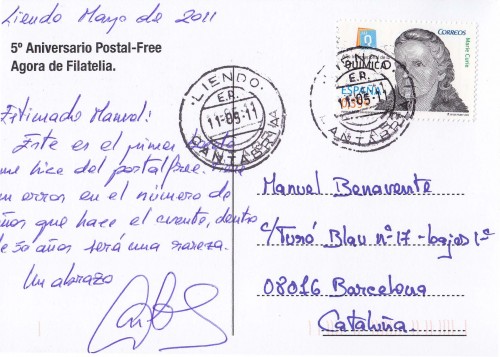 Liendo Mayo de 2011
5º Aniversario Postal-Free
Agora de Filatelia.
Estimado Manuel:
Este es el primer
que hice del postalfree.
un error en el número de
años que hace el evento, dentro
de 50 años será una rareza.
Un abrazo
LIENDO
E.R.
11-05-11
CANTABRIA
CORREOS
Marie Curie
QUÍMICA
ESPAÑA
LIENDO
E.R.
11-05-11
CANTABRIA
Manuel Benavente
C/Turó Blau nº 17-bajos 1ª
08016 Barcelona
Cataluña